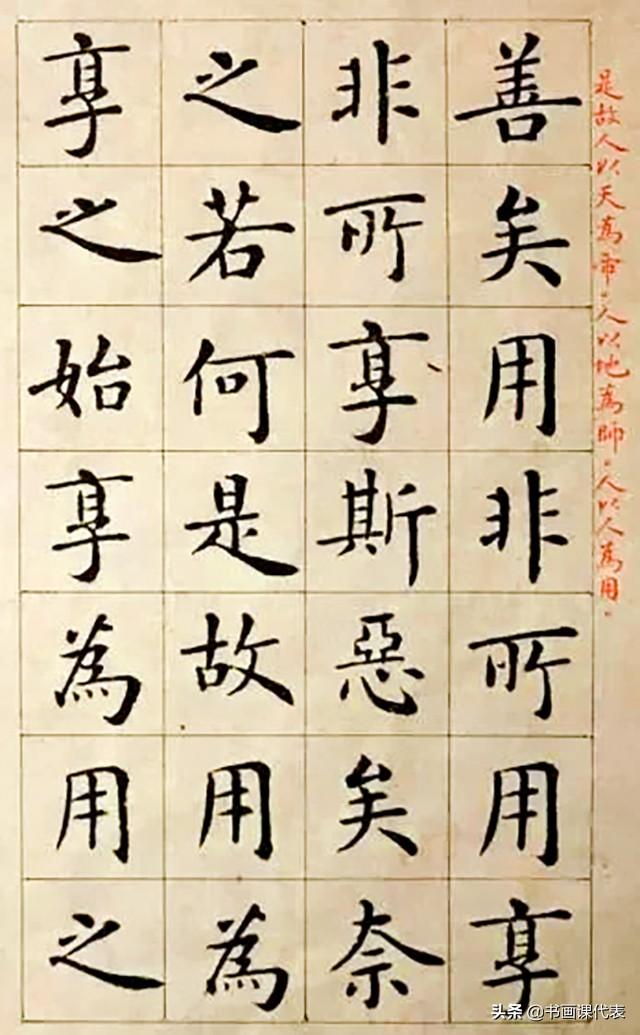 是故人以天為帝。人以地為師。人以人為用。
善矣用非所用享
非所享斯惡矣奈
之若何是故用為
享之始享為用之
头条 @书画课代表